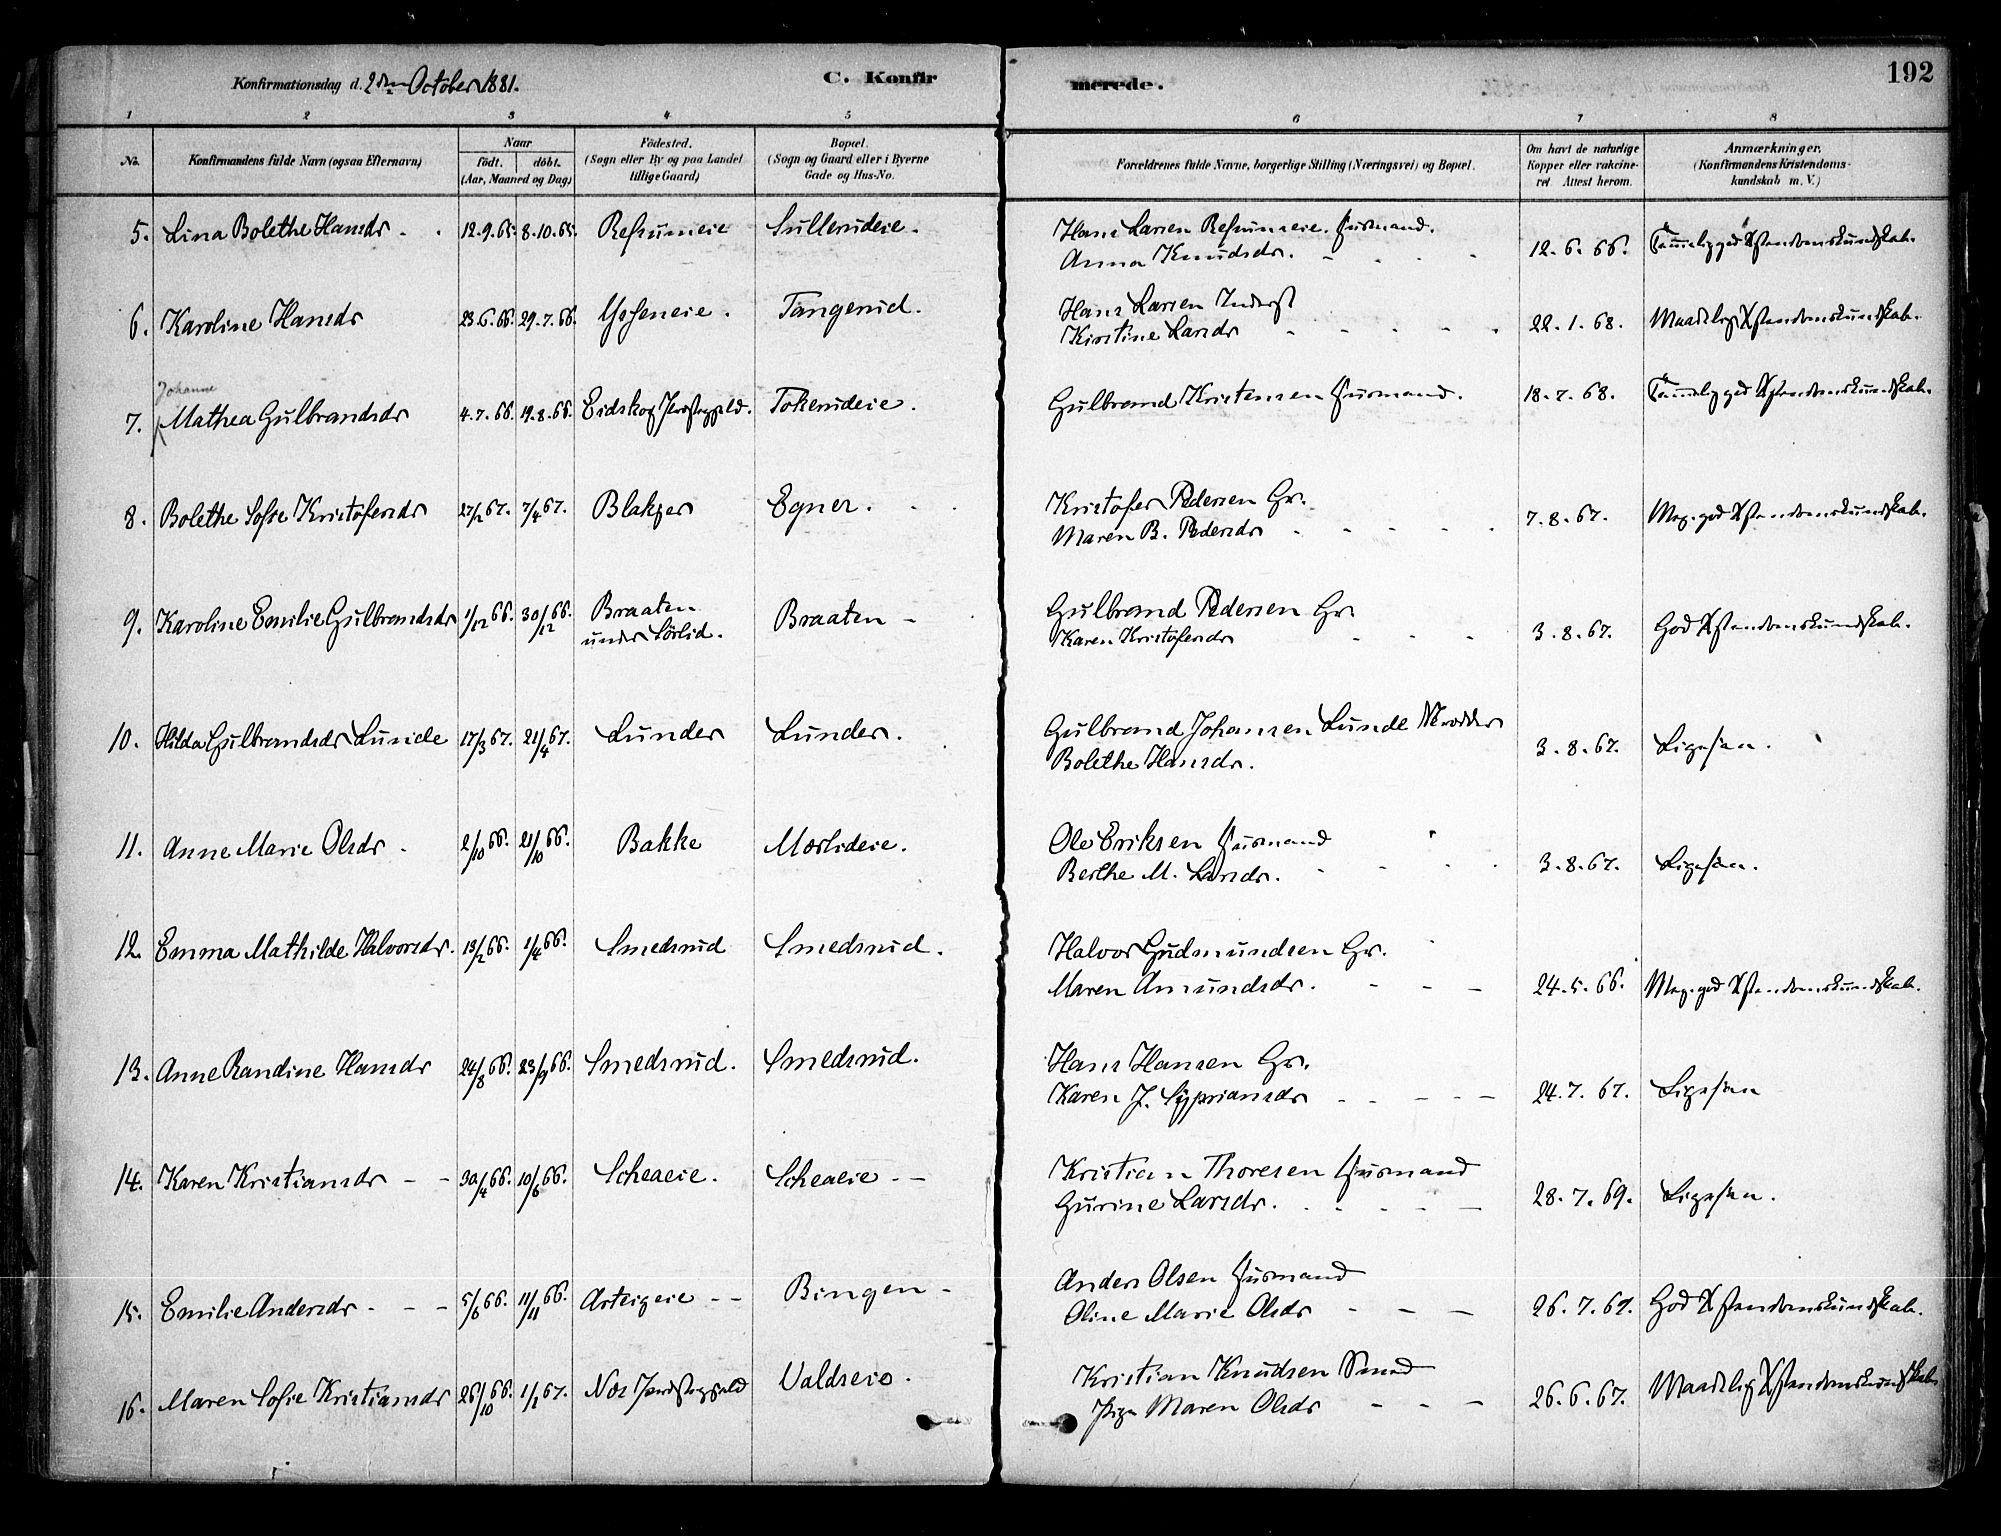 192
Konfirmationsdag d. 2den October 1881.
C. Konfirmerede.
1 2 3 4 5 6 7 8
No. Konfirmandens fulde Navn (ogsaa Efternavn) Naar født. døbt. (Aar, Maaned og Dag) Fødested. (Sogn eller By og paa Landet tillige Gaard) Bopæl. (Sogn og Gaard eller i Byerne Gade og Hus-No. Forældrenes fulde Navne, borgerlige Stilling (Næringsvei) og Bopæl. Om havt de naturlige Kopper eller vakcineret. Attest herom. Anmærkninger. (Konfirmandens Kristendomskundskab m. V.)
5. Lina Bolethe Hansdr. 12.9.65. 8.10.65. Sullerudeie. Hans Larsen Husmand. 12.6.66. Temmelig god Xstendomskundskab.
Anna Knudsdr.
6. Karoline Hansdr 23.6.66. 29.7.66. Tangerud. Hans Larsen Inderst 22.1.68. Maadelig Xstendomskundskab.
Kirstine Larsdr
Johanne
7. Mathea Gulbrandsdr 4.7.66. 19.8.66. Eidskog Præstegjeld. Tokerudeie. Gulbrand Kristensen Husmand. 18.7.68. Temmelig god Xstendomskundskab.
8. Bolethe Sofie Kristofersdr 27/2 67. 7/4 67. Blakjer Egner. Kristofer Pedersen Gr. 7.8.67. Meg. god Xstendomskundskab.
Maren B. Pedersdr
9. Karoline Emilie Gulbrandsdr 1/12 66. 30/12 66. Braaten under Sørlid. Braaten Gulbrand Pedersen Gr. 3.8.67. God Xstendomskundskab.
Karen Kristofersdr
10. Hilda Gulbrandsdr Lunde 17/3 67. 21/4 67. Lunder Lunder. Gulbrand Johansen Lunde 3.8.67. Ligesaa.
Bolethe Hansdr.
11. Anne Marie Olsdr. 2/10 66. 21/10 66. Bakke Mørlideie. Ole Eriksen Husmand 3.8.67. Ligesaa.
Berthe M. Larsdr.
12. Emma Mathilde Halvorsdr. 13/2 66. 1/4 66. Smedsrud Smedsrud. Halvor Gudmundsen Gr. 24.5.66. Meg. god Xstendomskundskab.
Maren Amundsdr.
13. Anne Randine Hansdr 24/8 66. 23/9 66. Smedsrud. Smedsrud. Hans Hansen Gr. 24.7.67. Ligesaa
Karen J. Sypriansdr
14. Karen Kristiansdr 30/4 66. 10/6 66. Scheaeie. Scheaeie Kristian Thoresen Husmand 28.7.69. Ligesaa.
Gurine Larsdr.
15. Emilie Andersdr. 5/6 66. 11/11 66. Arteigeie Bingen Anders Olsen Husmand 26.7.67. God Xstendomskundskab.
Oline Marie Olsdr
16. Maren Sofie Kristiansdr 26/10 66. 1/1 67. Nes Præstegjeld Valdseie. Kristian Knudsen Smed 26.6.67. Maadelig Xstendomskundskab
Pige Maren Olsdr